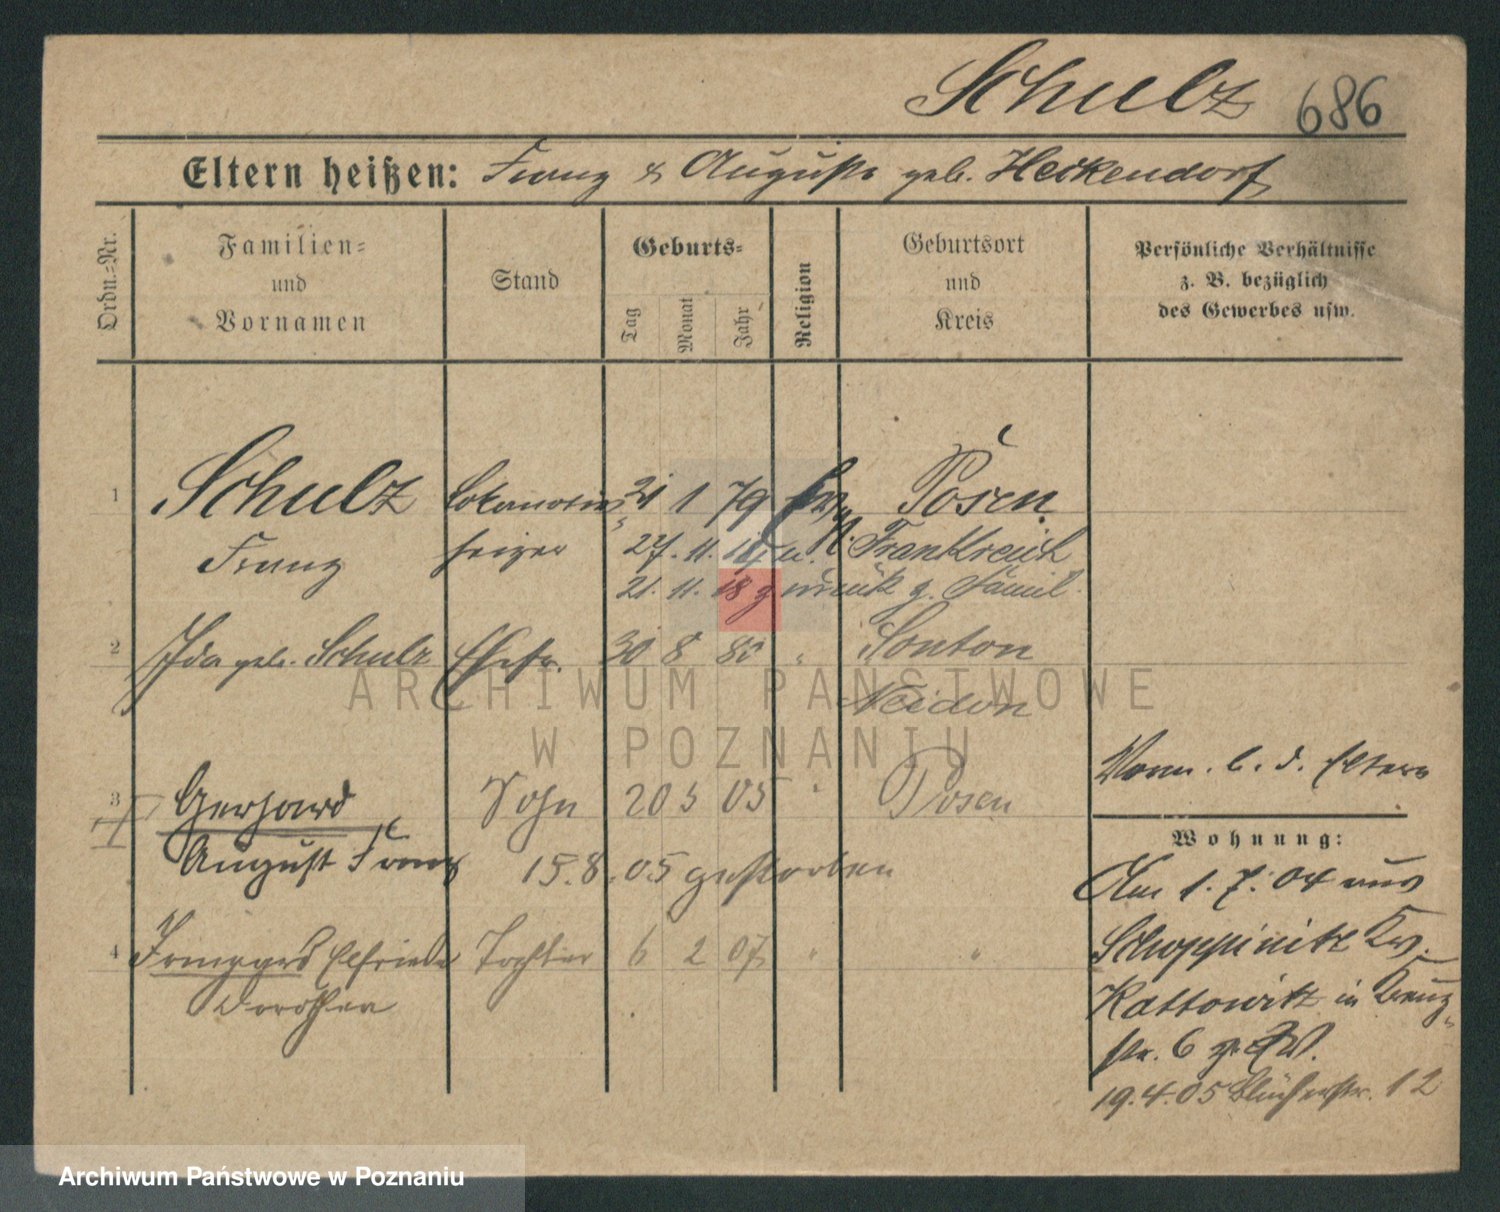 Schulz 686
Eltern heißen: Franz & Auguste geb. Heckendorf
Ordn.=Nr.
Familien=
und
Vornamen
Stand
Geburts=
Tag
Monat
Jahr
Religion
Geburtsort
und
Kreis
Persönliche Verhältnisse
z. B. bezüglich
des Gewerbes usw.
1 Schulz 21 1 79 Posen
Franz heizer 27. 11. n. Frankreich
21. 11. 18 zurück z. Famil.
2 Ida geb. Schulz Ehefr. 30 8 "
ARCHIWUM PAŃSTWOWE
W POZNANIU
Wonn. b. d. Eltern
3 Gerhard Sohn 20 5 05 " Posen
August Franz 15.8.05 gestorben
4 Irmgard Elfriede Tochter 6 2 07 " "
Dorothea
Wohnung:
Am 1. 7. 04 aus
Schoppinitz Kr.
Kattowitz in Kreuz
str. 6
19.4.05 Blücherstr. 12
Archiwum Państwowe w Poznaniu